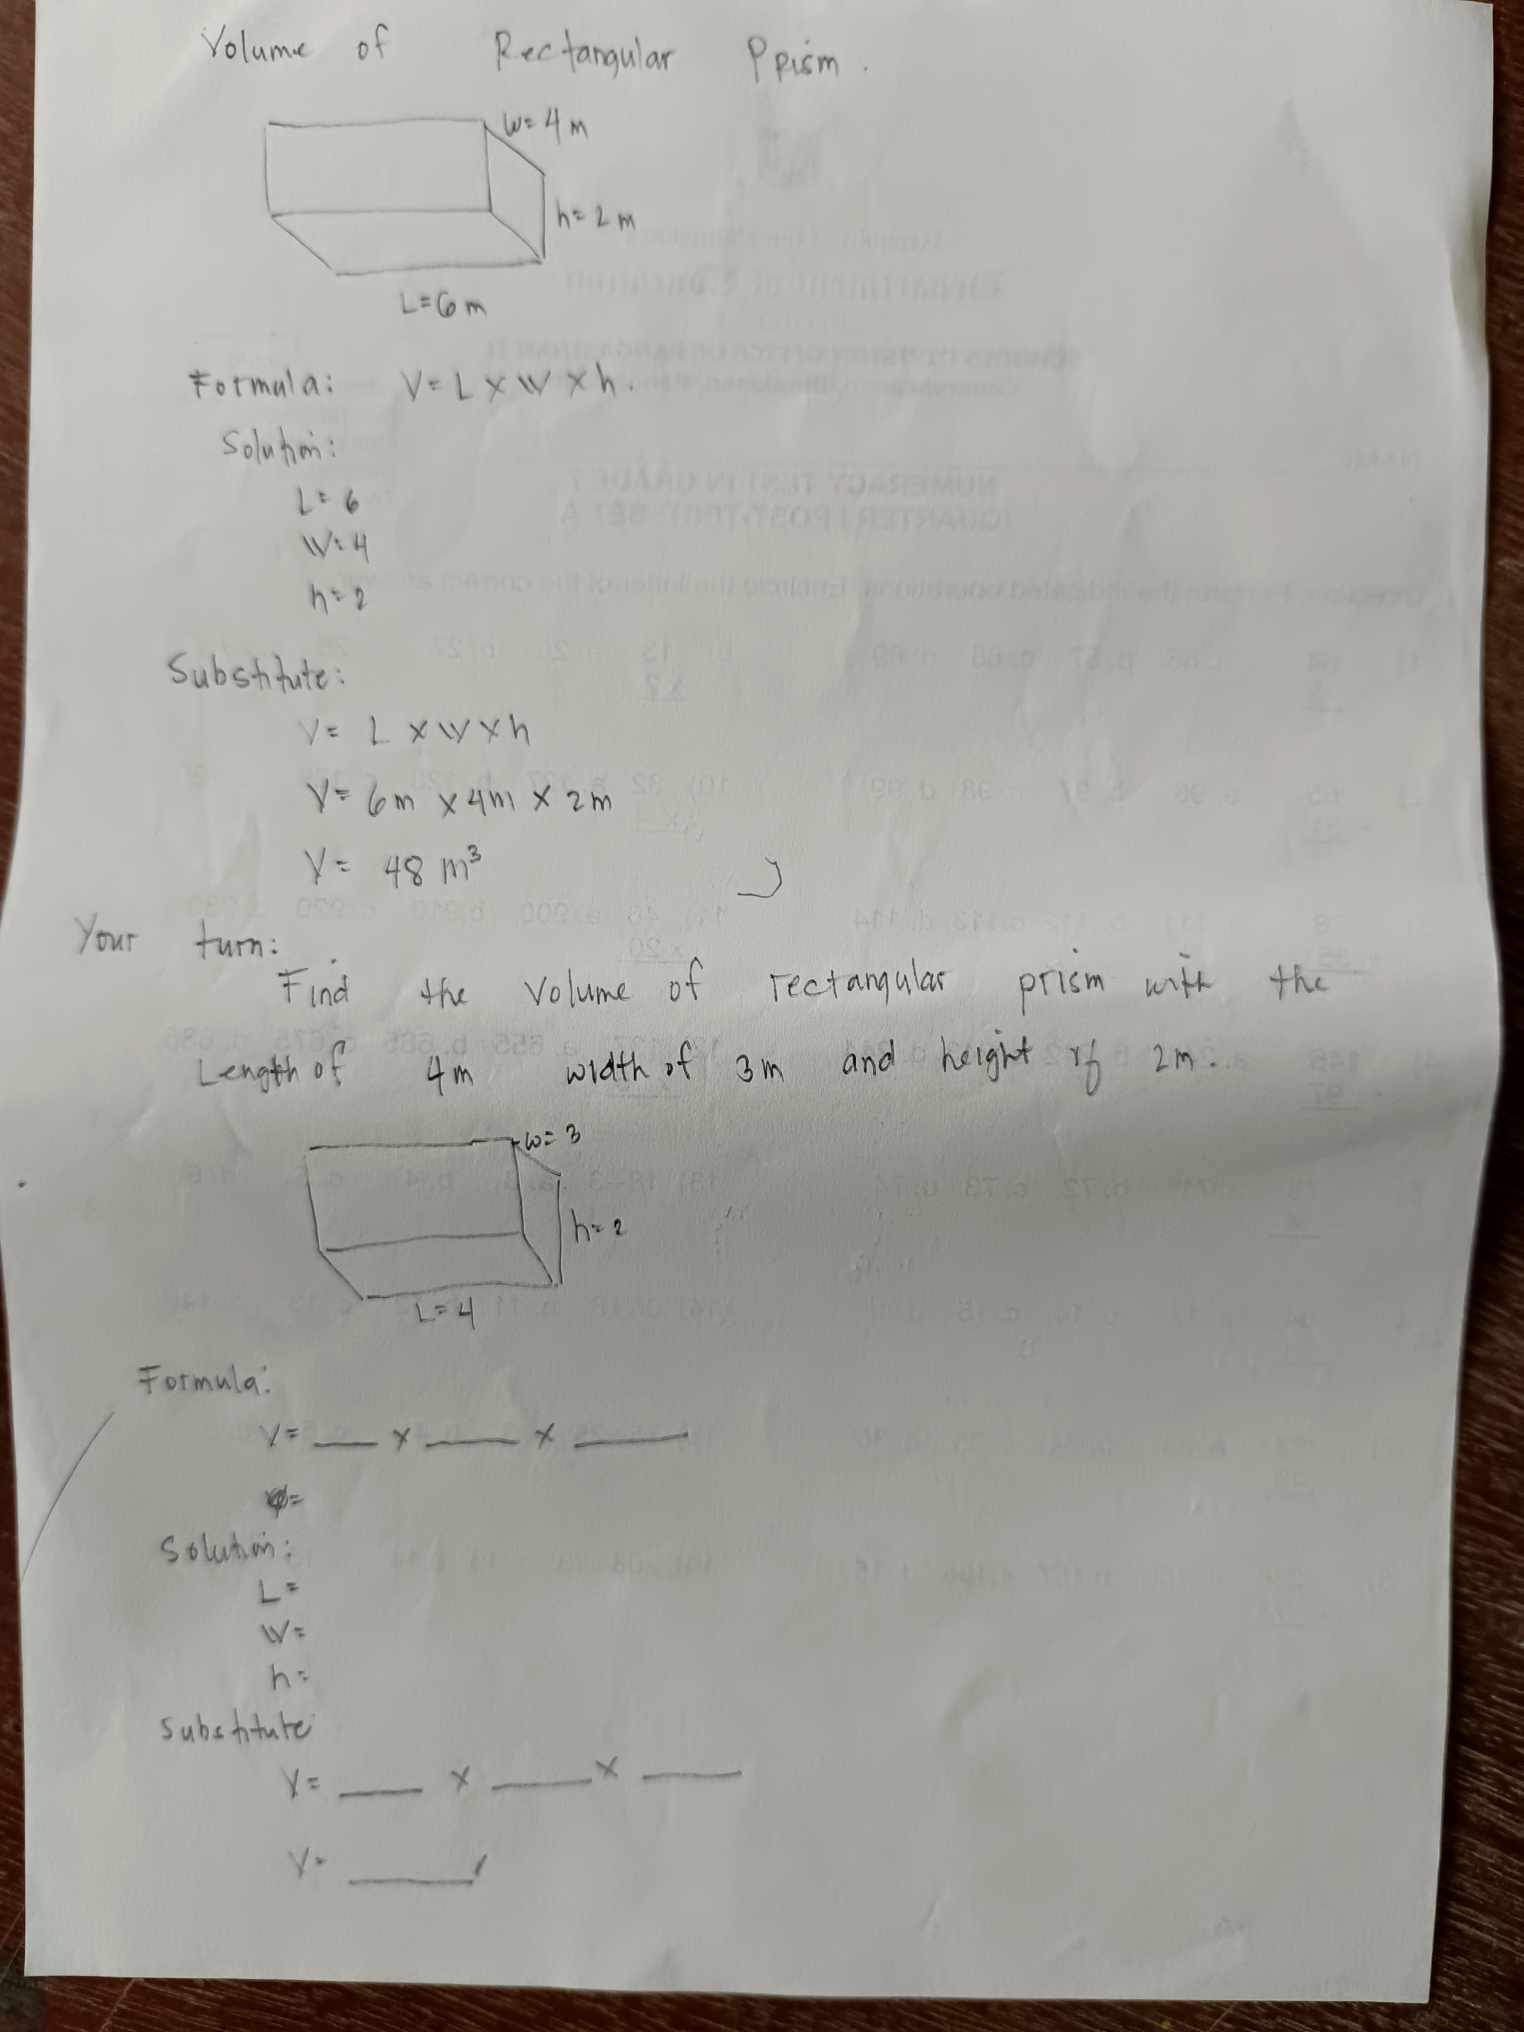 Volume of Rectangular Prism.
W= 4 m
h= 2 m
L=6 m
Formula: V= L x W x h.
Solution:
L= 6
W= 4
h= 2
Substitute:
V= L x W x h
V= 6m x 4m x 2m
V= 48 m³
Your turn:
Find the Volume of rectangular prism with the
Length of 4m width of 3m and height of 2m.
W= 3
h= 2
L= 4
Formula:
V= ___ x ___ x ___
=
Solution:
L=
W=
h=
Substitute
V= ___ x ___ x ___
V= ___